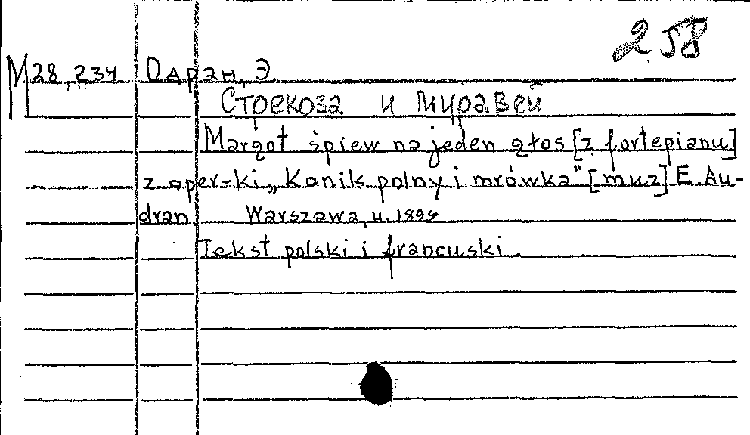 258
M28,234 Одран, Э.
Стрекоза и муравей
Margot śpiew na jeden głos [z fortepianu]
z oper-ki „Konik polny i mrówka" [muz] E. Au-
dran. Warszawa, u. 1899
Tekst polski i francuski.